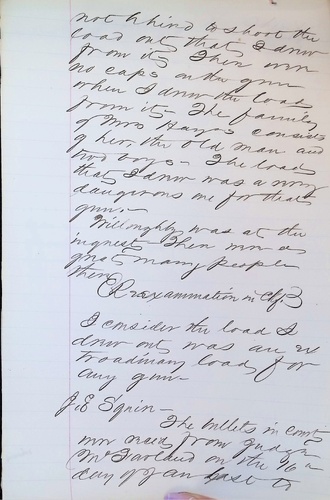 not behind to shoot the
load out that I drew
from it. There were
no caps on the gun
when I drew the load
from it - The family
of Mrs Hayes consists
of her, the old man and
two boys - The load
that I drew was a very
dangerous one for that
gun. -
Willoughby was at the
inquest - There were a
great many people
there
Reexammination in Chf.
I consider the load I
drew out was an ex
troadinary load for
any gun -
J. E. Squin -
The bullets in court
were received from Judge
McFarland on the 16
day of Jan last